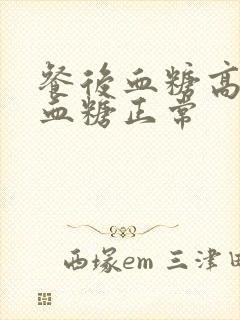 餐後血糖高
血糖正常
西塚em 三津田